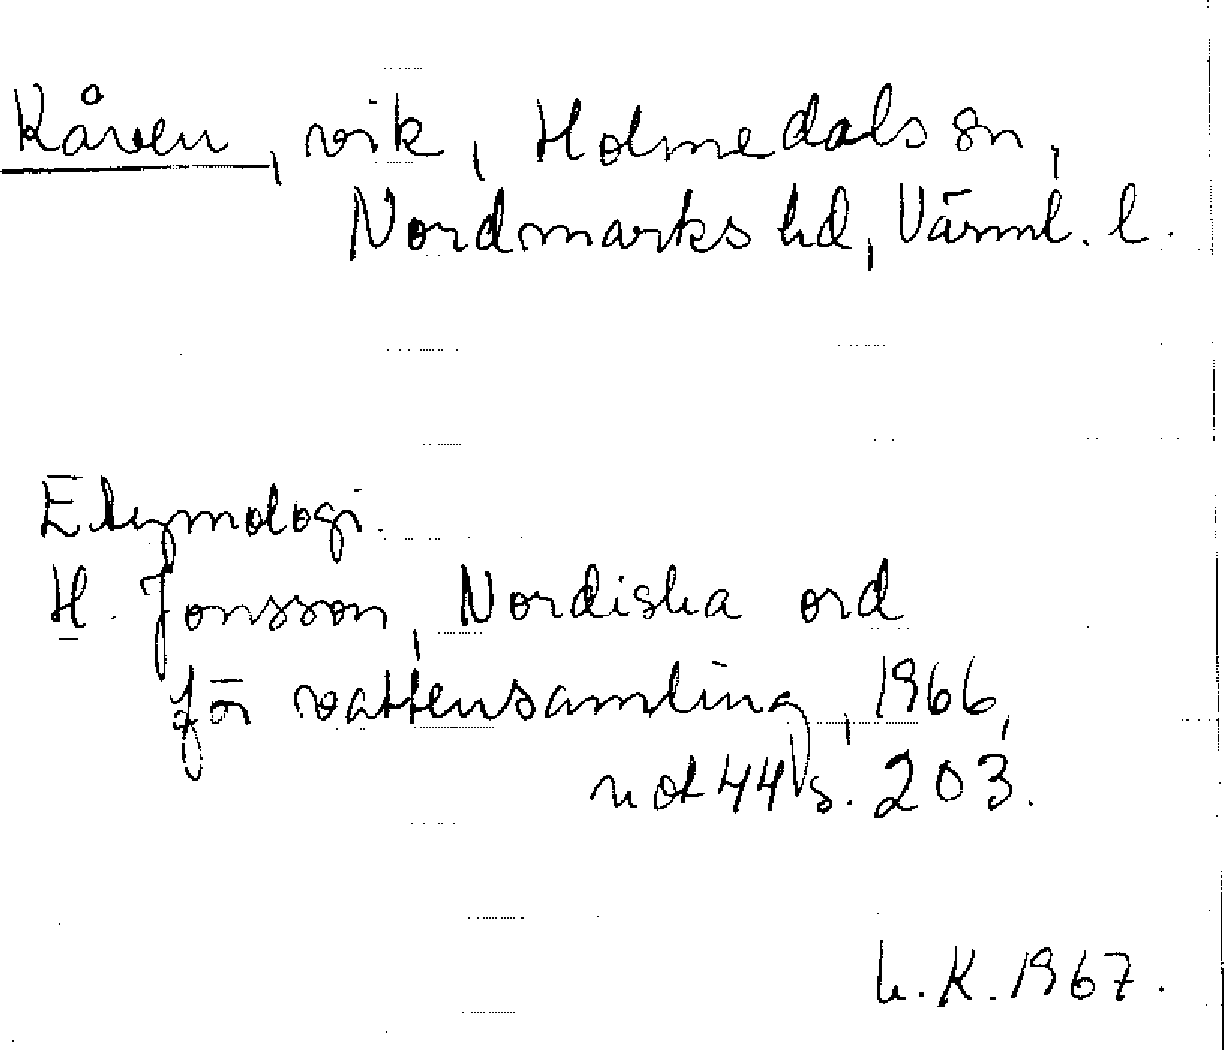 Kåven, vik, Holmedals sn,
Nordmarks hd, Värml. l.
Etymologi.
H. Jonsson, Nordiska ord
för vattensamling, 1966,
not 44 s. 203.
L.K. 1967.